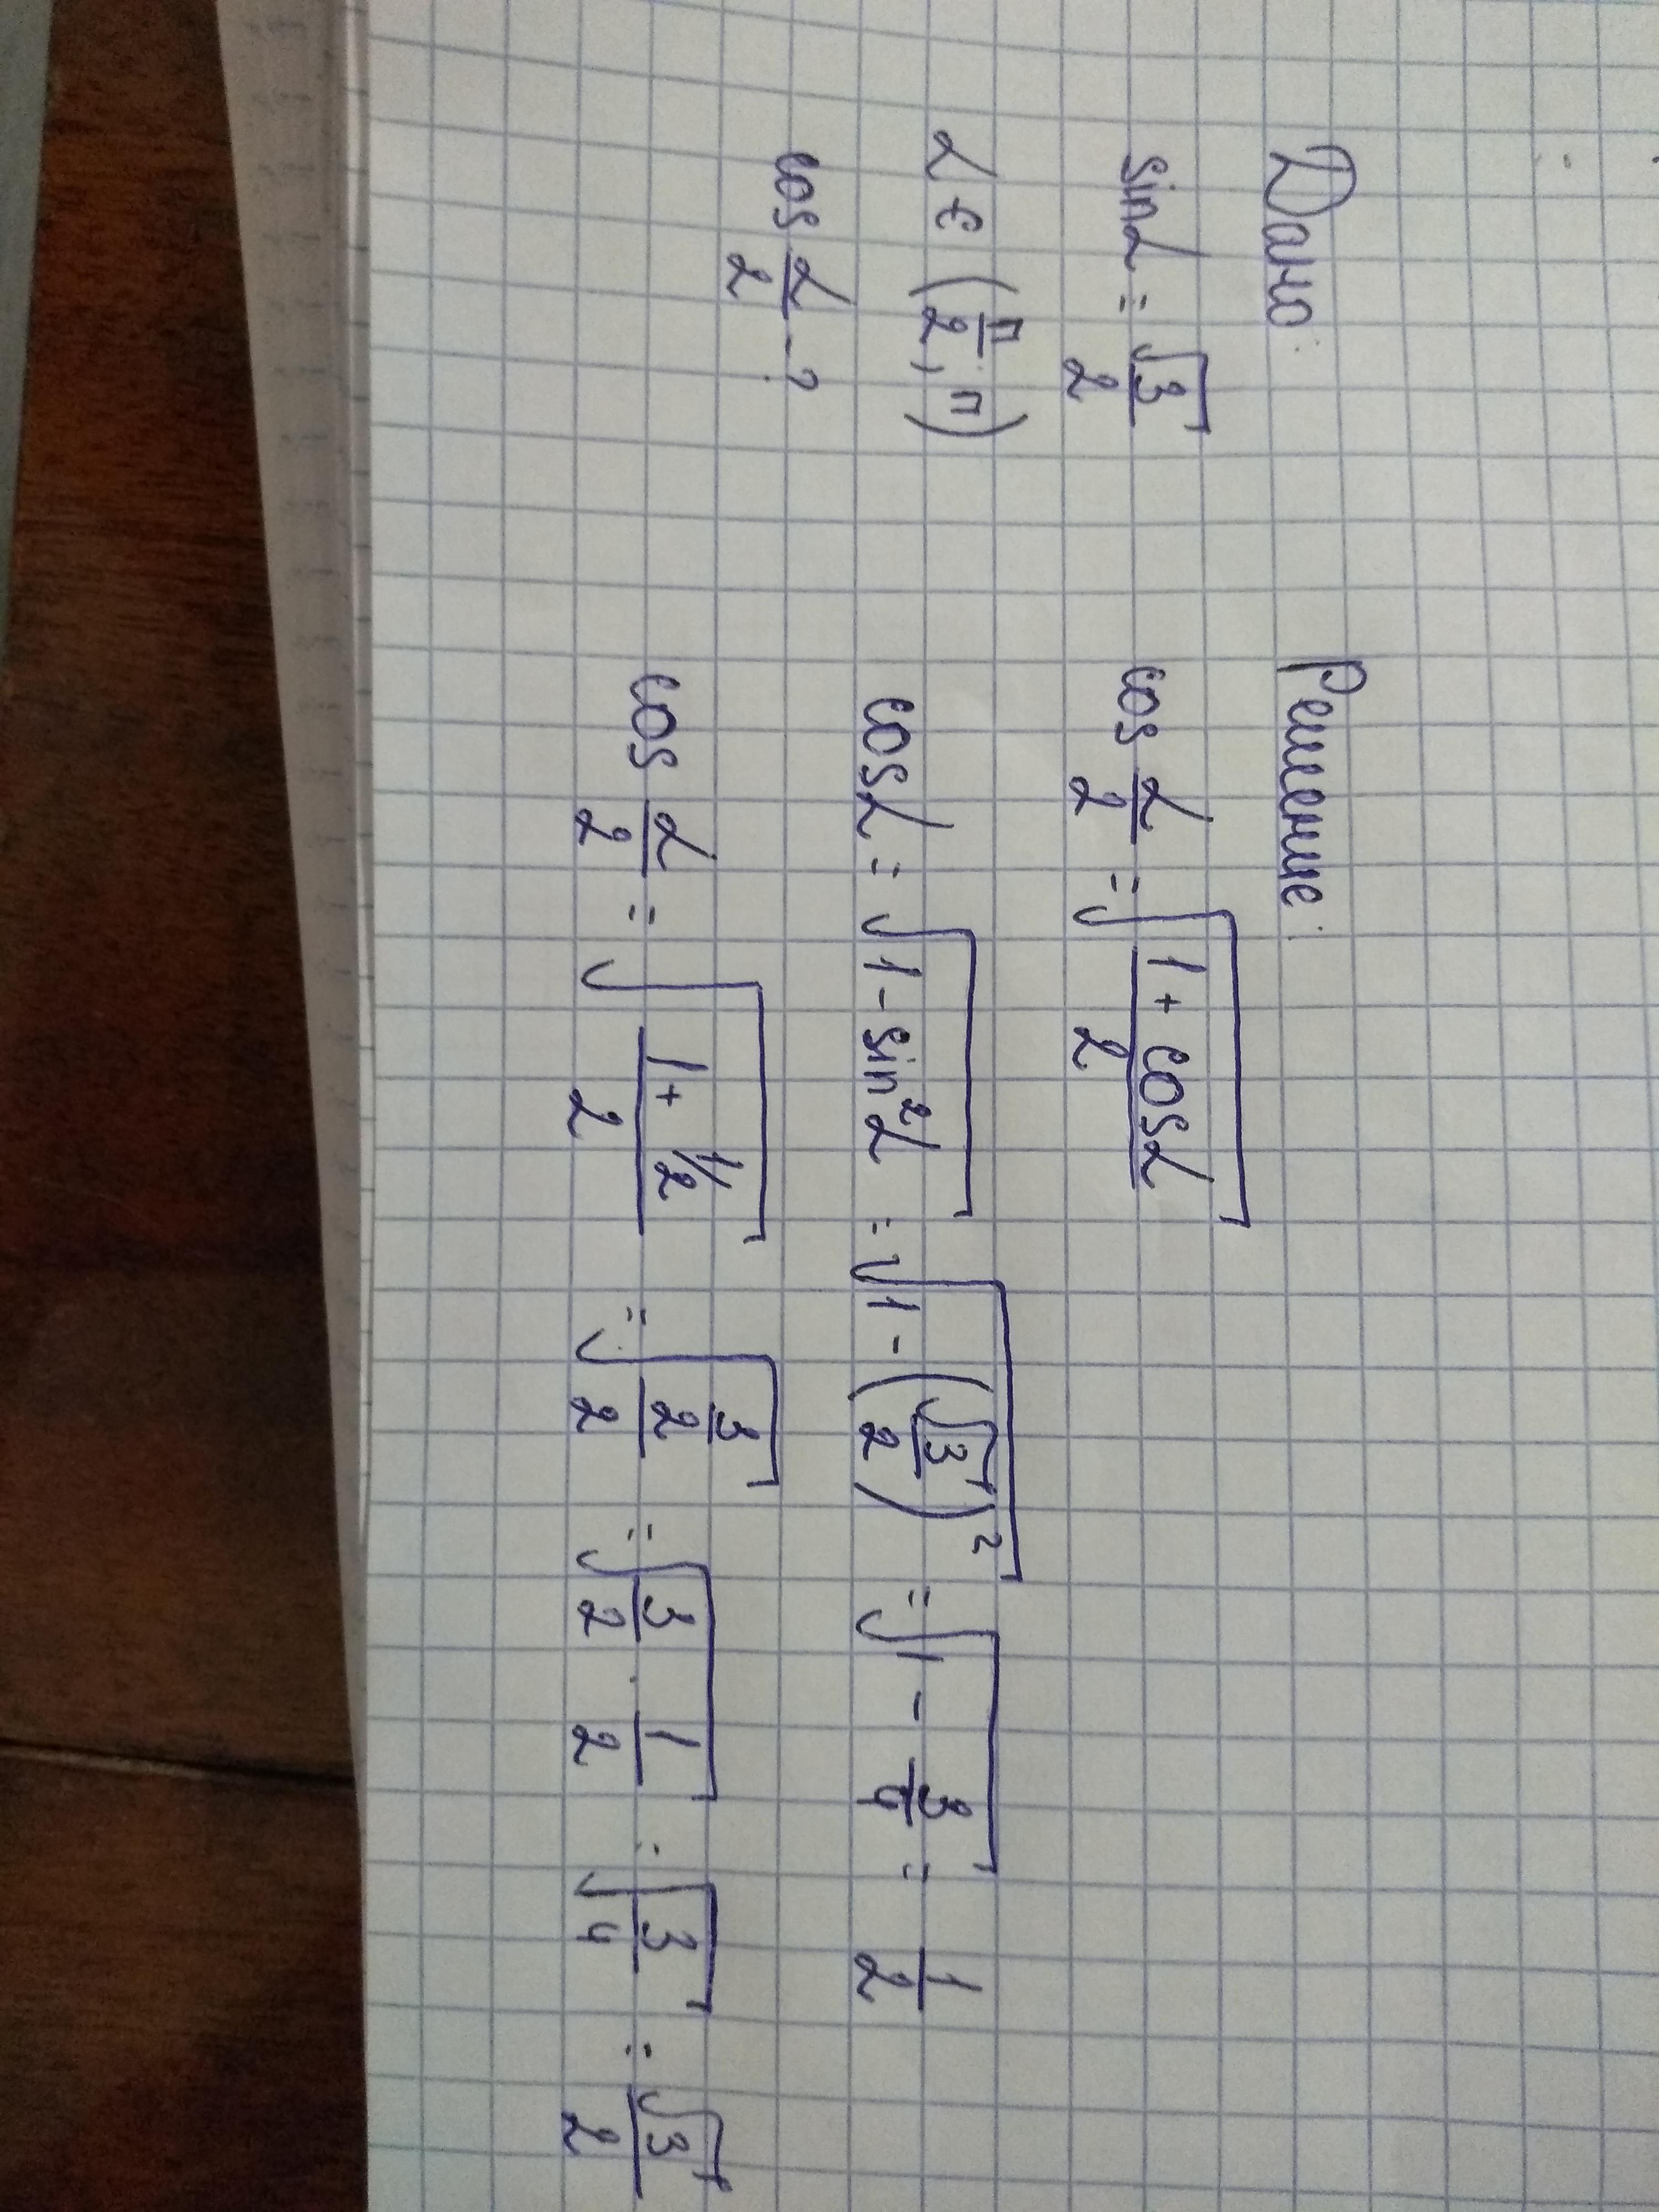 Дано:
sinα = √3/2
α ∈ (π/2; π)
cos α/2 - ?
Решение:
cos α/2 = √((1 + cosα)/2)
cosα = √(1 - sin²α) = √(1 - (√3/2)²) = √(1 - 3/4) = 1/2
cos α/2 = √((1 + 1/2)/2) = √((3/2)/2) = √(3/2 · 1/2) = √(3/4) = √3/2